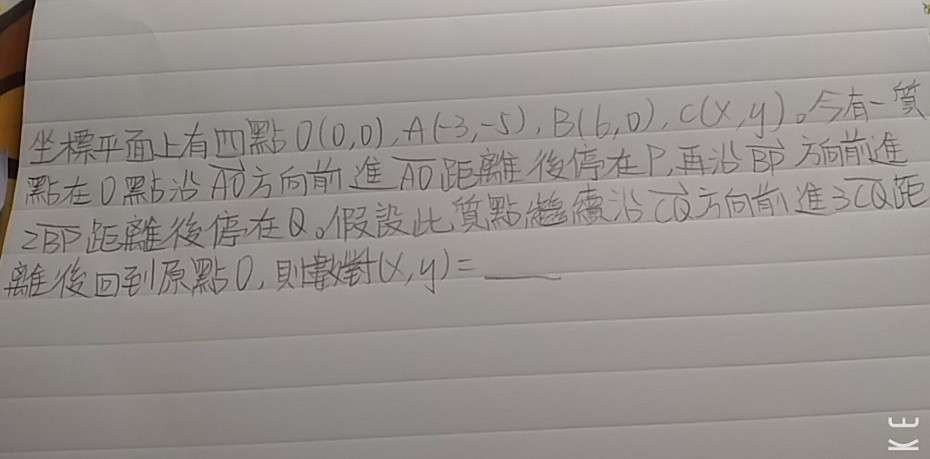 坐標平面上有四點O(0,0),A(-3,-5),B(6,0),C(x,y)。今有一質
點在O點沿AO方向前進AO距離後停在P,再沿BP方向前進
2BP距離後停在Q。假設此質點繼續沿CQ方向前進3CQ距
離後回到原點O,則數對(x,y)=____
KE